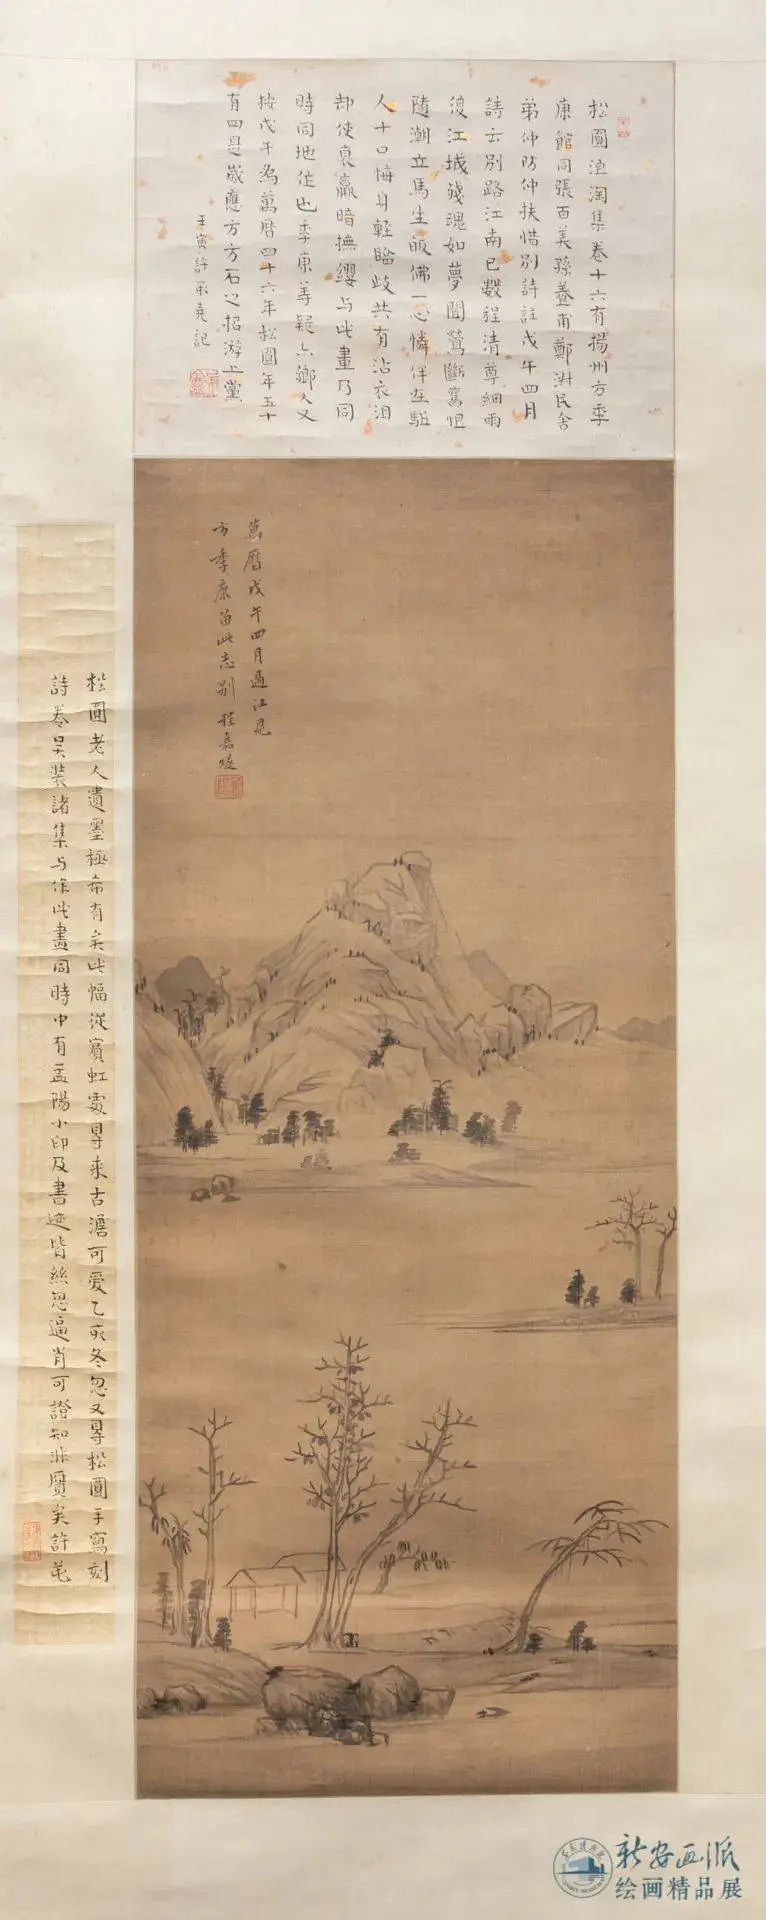 松圓浪淘集卷十六有揚州方季
康館同張百美孫養甫鄭澍民舍
弟仲防仲扶惜別詩註戊午四月
詩云別路江南已數程清尊細雨
復江城殘魂如夢聞鶯斷舊恨
隨潮立馬生皈佛一心憐伴在駈
人十口悔身輕臨歧共有沾衣淚
却使哀羸暗撫纓与此畫乃同
時同地作也季康善疑亦鄉人又
按戊午為萬曆四十六年松圓年五十
有四是歲應方方石之招游上黨
壬寅許承堯記
萬曆戊午四月過江見
方季康留此志別 程嘉燧
松圓老人遺墨極希有矣此幅從賓虹處尋來古澹可愛乙亥冬忽又尋松圓手寫刻
詩卷吳裝諸集与作此畫同時中有孟陽小印及書迹皆絲忽逼肖可證知非贋矣許芚
新安画派
绘画精品展